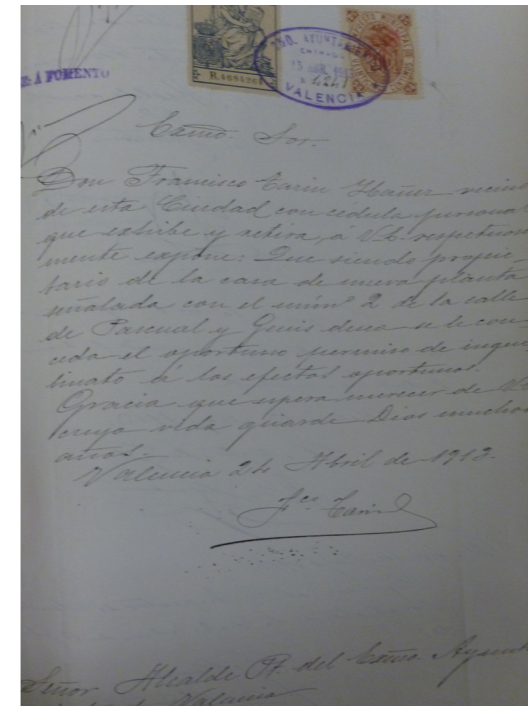 A FOMENTO
R.4684261
AYUNTAMIENTO
ENTRADA
VALENCIA
Exmo. Sor.
Don Francisco Tarin Ybañez vecino
de esta Ciudad con cédula personal
que exhibe y retira, á V.E. respetuosa
mente expone: Que siendo propie-
tario de la casa de nueva planta
señalada con el núm.º 2 de la calle
de Pascual y Genis desea se le con
ceda el oportuno permiso de inqui
linato á los efectos oportunos.
Gracia que espera merecer de V.E.
cuya vida guarde Dios muchos
años.
Valencia 24 Abril de 1913.
Fco Tarin
Señor Alcalde Pt. del Exmo. Ayunt
Valencia